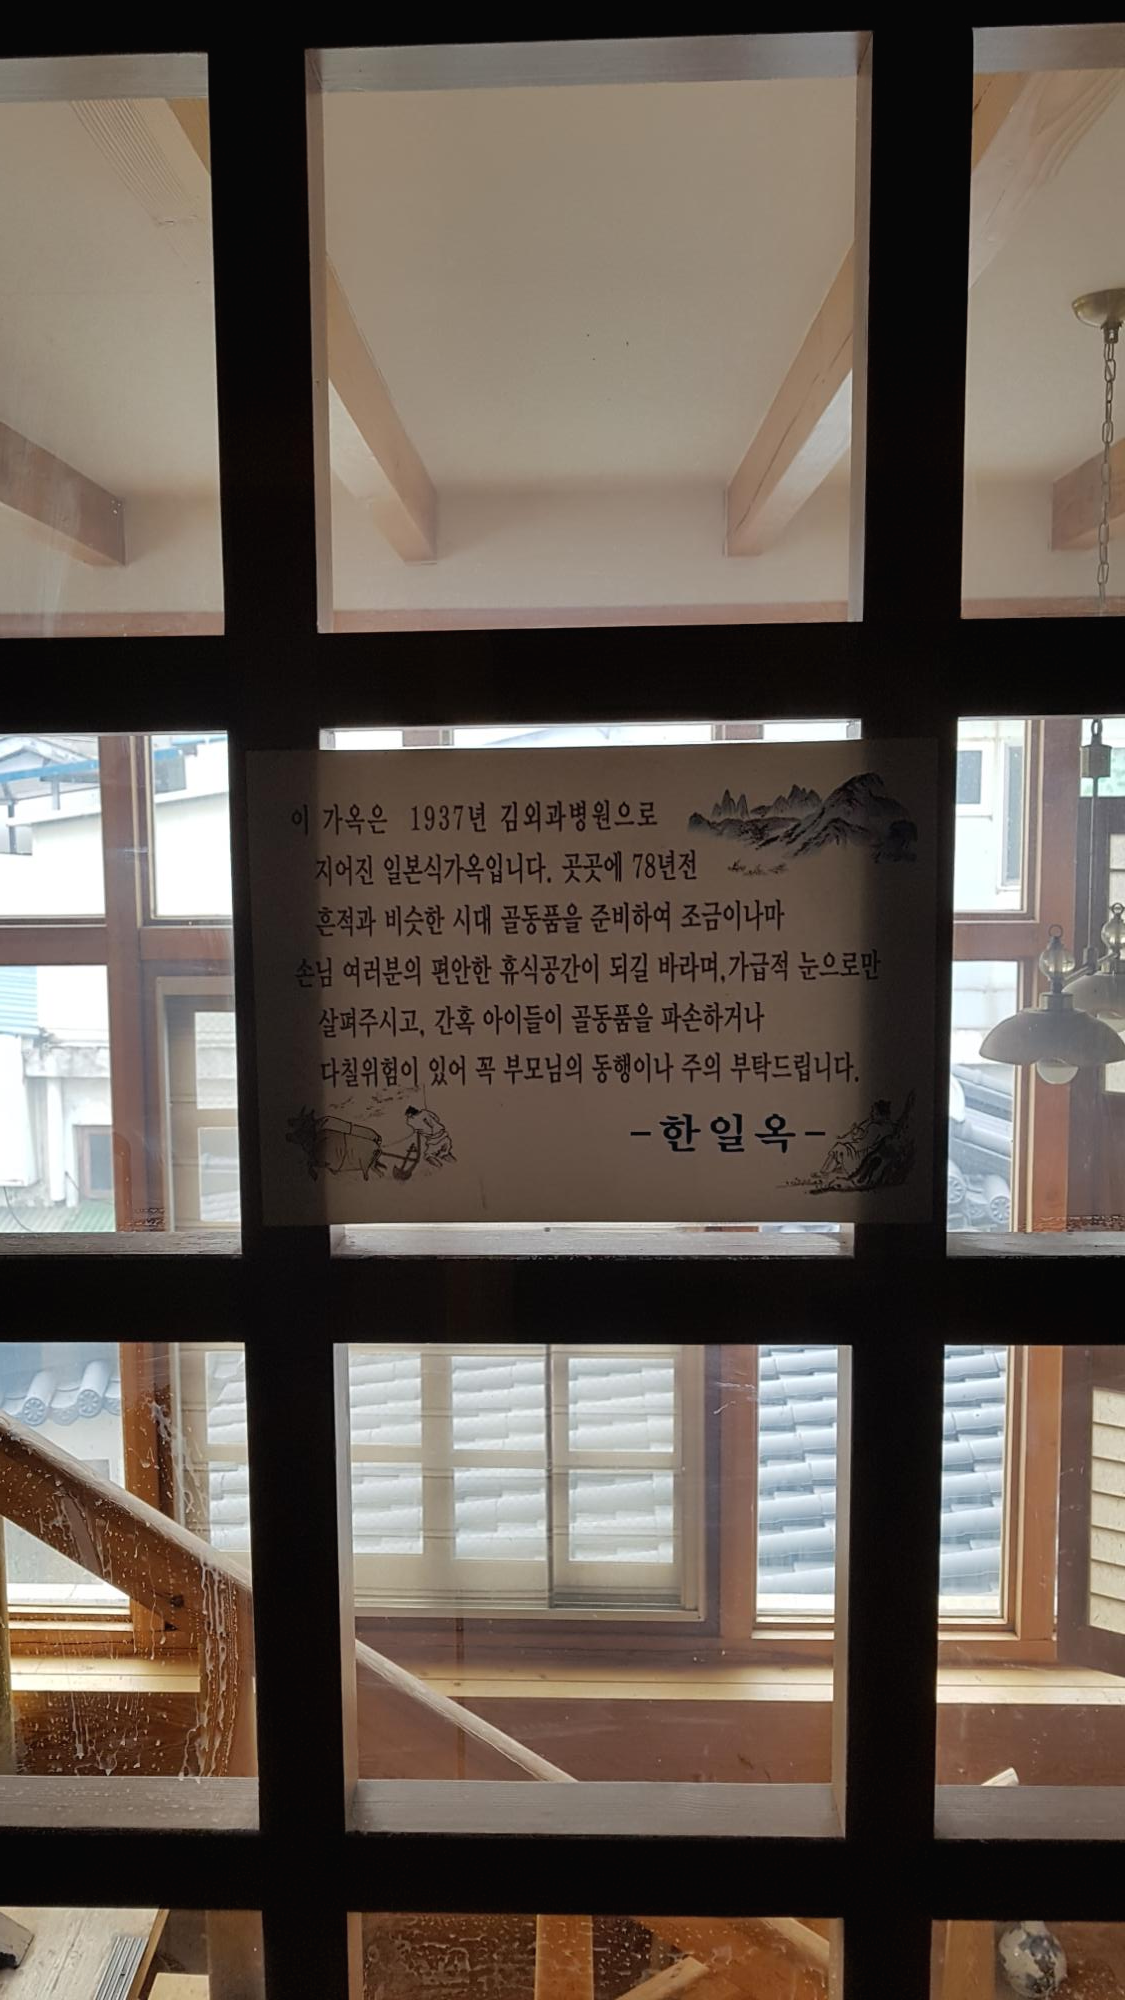 이 가옥은 1937년 김외과병원으로
지어진 일본식가옥입니다. 곳곳에 78년전
흔적과 비슷한 시대 골동품을 준비하여 조금이나마
손님 여러분의 편안한 휴식공간이 되길 바라며,가급적 눈으로만
살펴주시고, 간혹 아이들이 골동품을 파손하거나
다칠위험이 있어 꼭 부모님의 동행이나 주의 부탁드립니다.
-한일옥-